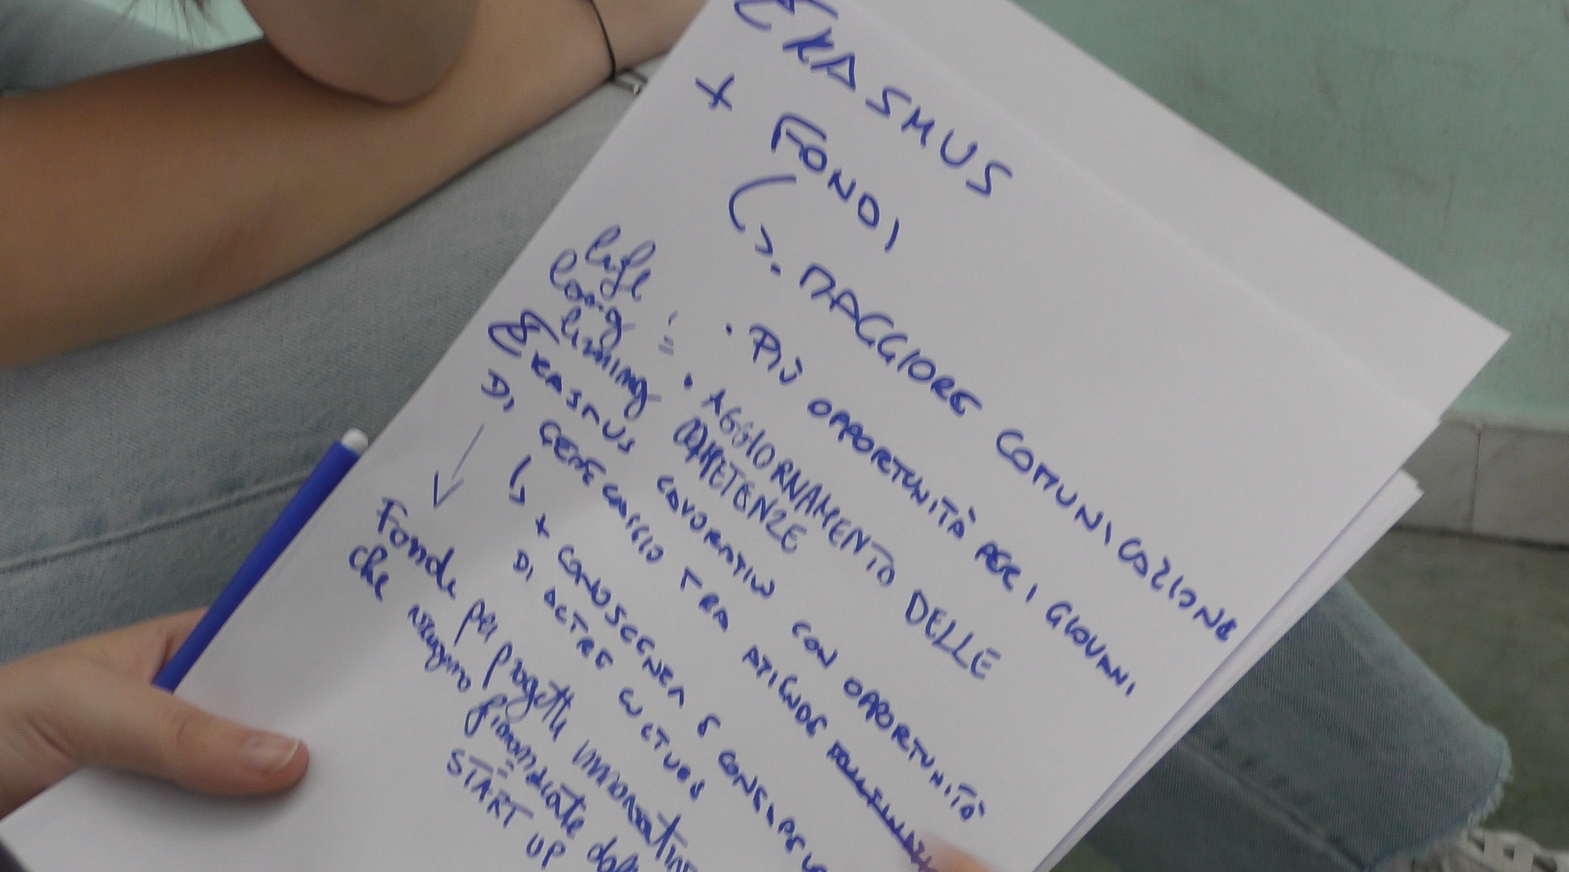 ERASMUS
+ FONDI
↳ . MAGGIORE COMUNICAZIONE
· PIÙ OPPORTUNITÀ PER I GIOVANI
life
long
lirning
: = • AGGIORNAMENTO DELLE
COMPETENZE
ERASMUS LAVORATIVO CON OPPORTUNITÀ
DI GEMELLAGGIO TRA AZIENDE
↳ + CONOSCENZA E
DI ALTRE CULTURE
Fonde per progetti
che
START UP